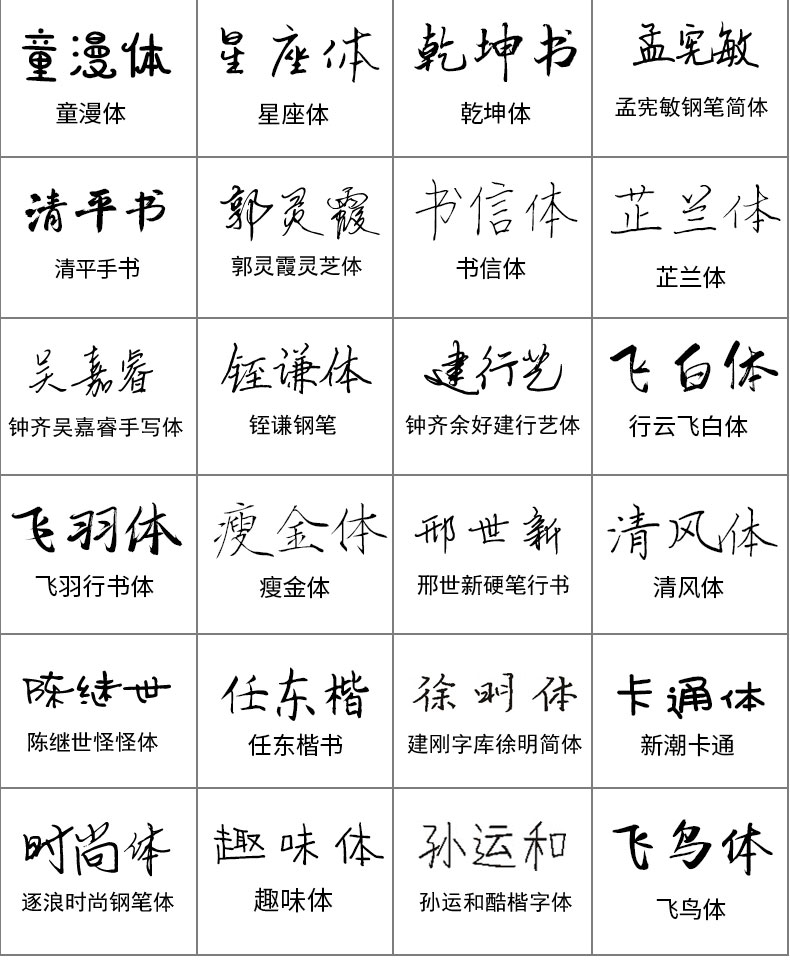 童漫体
童漫体
星座体
星座体
乾坤书
乾坤体
孟宪敏
孟宪敏钢笔简体
清平书
清平手书
郭灵霞
郭灵霞灵芝体
书信体
书信体
芷兰体
芷兰体
吴嘉睿
钟齐吴嘉睿手写体
铚谦体
铚谦钢笔
建行艺
钟齐余好建行艺体
飞白体
行云飞白体
飞羽体
飞羽行书体
瘦金体
瘦金体
邢世新
邢世新硬笔行书
清风体
清风体
陈继世
陈继世怪怪体
任东楷
任东楷书
徐明体
建刚字库徐明简体
卡通体
新潮卡通
时尚体
逐浪时尚钢笔体
趣味体
趣味体
孙运和
孙运和酷楷字体
飞鸟体
飞鸟体